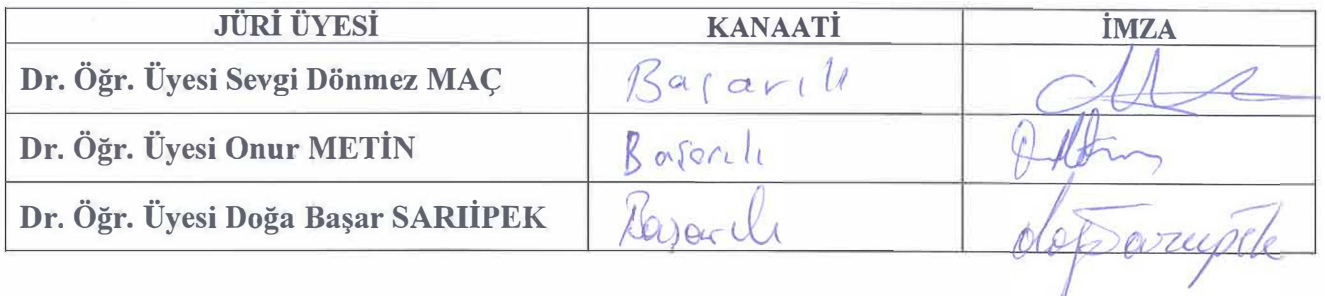 JÜRİ ÜYESİ KANAATİ İMZA
Dr. Öğr. Üyesi Sevgi Dönmez MAÇ Başarılı
Dr. Öğr. Üyesi Onur METİN Başarılı
Dr. Öğr. Üyesi Doğa Başar SARIİPEK Başarılı